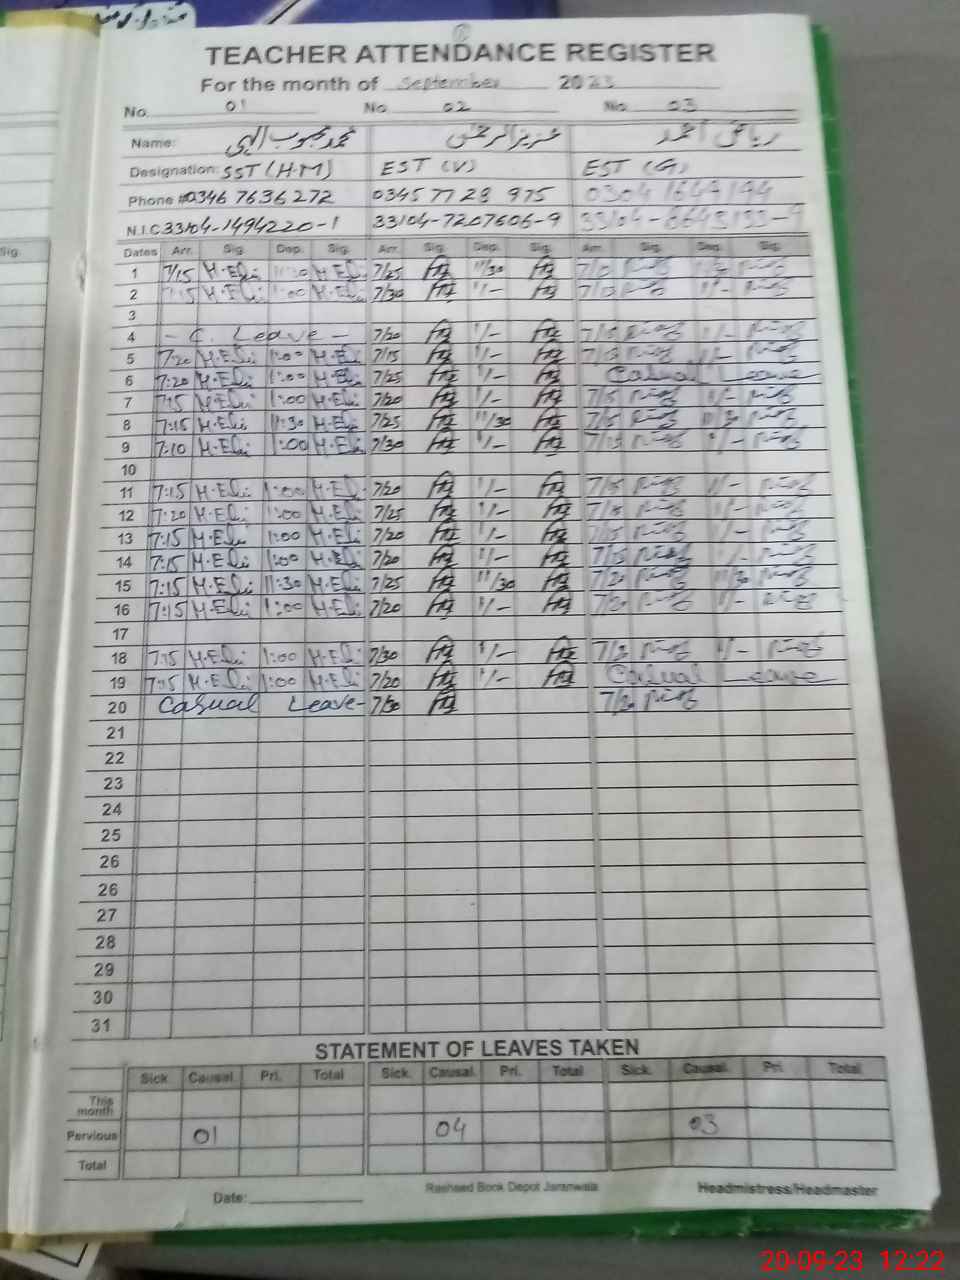 TEACHER ATTENDANCE REGISTER
For the month of September 2023
No. 01 No. 02 No. 03
Name: محمد محبوب الہی عزیز الرحمٰن ریاض احمد
Designation: SST (H.M) EST (V) EST (G)
Phone # 0346 7636272 0345 77 28 975 0304 1649194
N.I.C 33104-1494220-1 33104-7207606-9 33104-6643133-9
Dates Arr. Sig. Dep. Sig. Arr. Sig. Dep. Sig. Arr. Sig. Dep. Sig.
1 7/15 M.Elii 11:30 M.Elii 7/25 11/30
2 7:15 M.Elii 1:00 M.Elii 7/30 1/-
3
4 - C. Leave - 7/20 1/- 7/15 1/-
5 7:20 M.Elii 1:00 M.Elii 7/15 1/- 7/15 1/-
6 7:20 M.Elii 1:00 M.Elii 7/25 1/- Casual Leave
7 7:15 M.Elii 1:00 M.Elii 7/20 1/- 7/15 1/-
8 7:15 M.Elii 11:30 M.Elii 7/25 11/30 7/15 11/30
9 7:10 M.Elii 1:00 M.Elii 7/30 1/- 7/15 1/-
10
11 7:15 M.Elii 1:00 M.Elii 7/20 1/- 7/15 1/-
12 7:20 M.Elii 1:00 M.Elii 7/25 1/- 7/15 1/-
13 7:15 M.Elii 1:00 M.Elii 7/20 1/- 7/15 1/-
14 7:15 M.Elii 1:00 M.Elii 7/20 1/- 7/15 1/-
15 7:15 M.Elii 11:30 M.Elii 7/25 11/30 7/20 11/30
16 7:15 M.Elii 1:00 M.Elii 7/20 1/- 7/20 1/-
17
18 7:15 M.Elii 1:00 M.Elii 7/30 1/- 7/20 1/-
19 7:15 M.Elii 1:00 M.Elii 7/20 1/- Casual Leave
20 Casual Leave- 7/30 7/20
21
22
23
24
25
26
26
27
28
29
30
31
STATEMENT OF LEAVES TAKEN
Sick Causal. Pri. Total Sick. Causal. Pri. Total Sick. Causal. Pri. Total
This month
Pervious 01 04 03
Total
Date:
Rasheed Book Depot Jaranwala
Headmistress/Headmaster
20-09-23 12:22